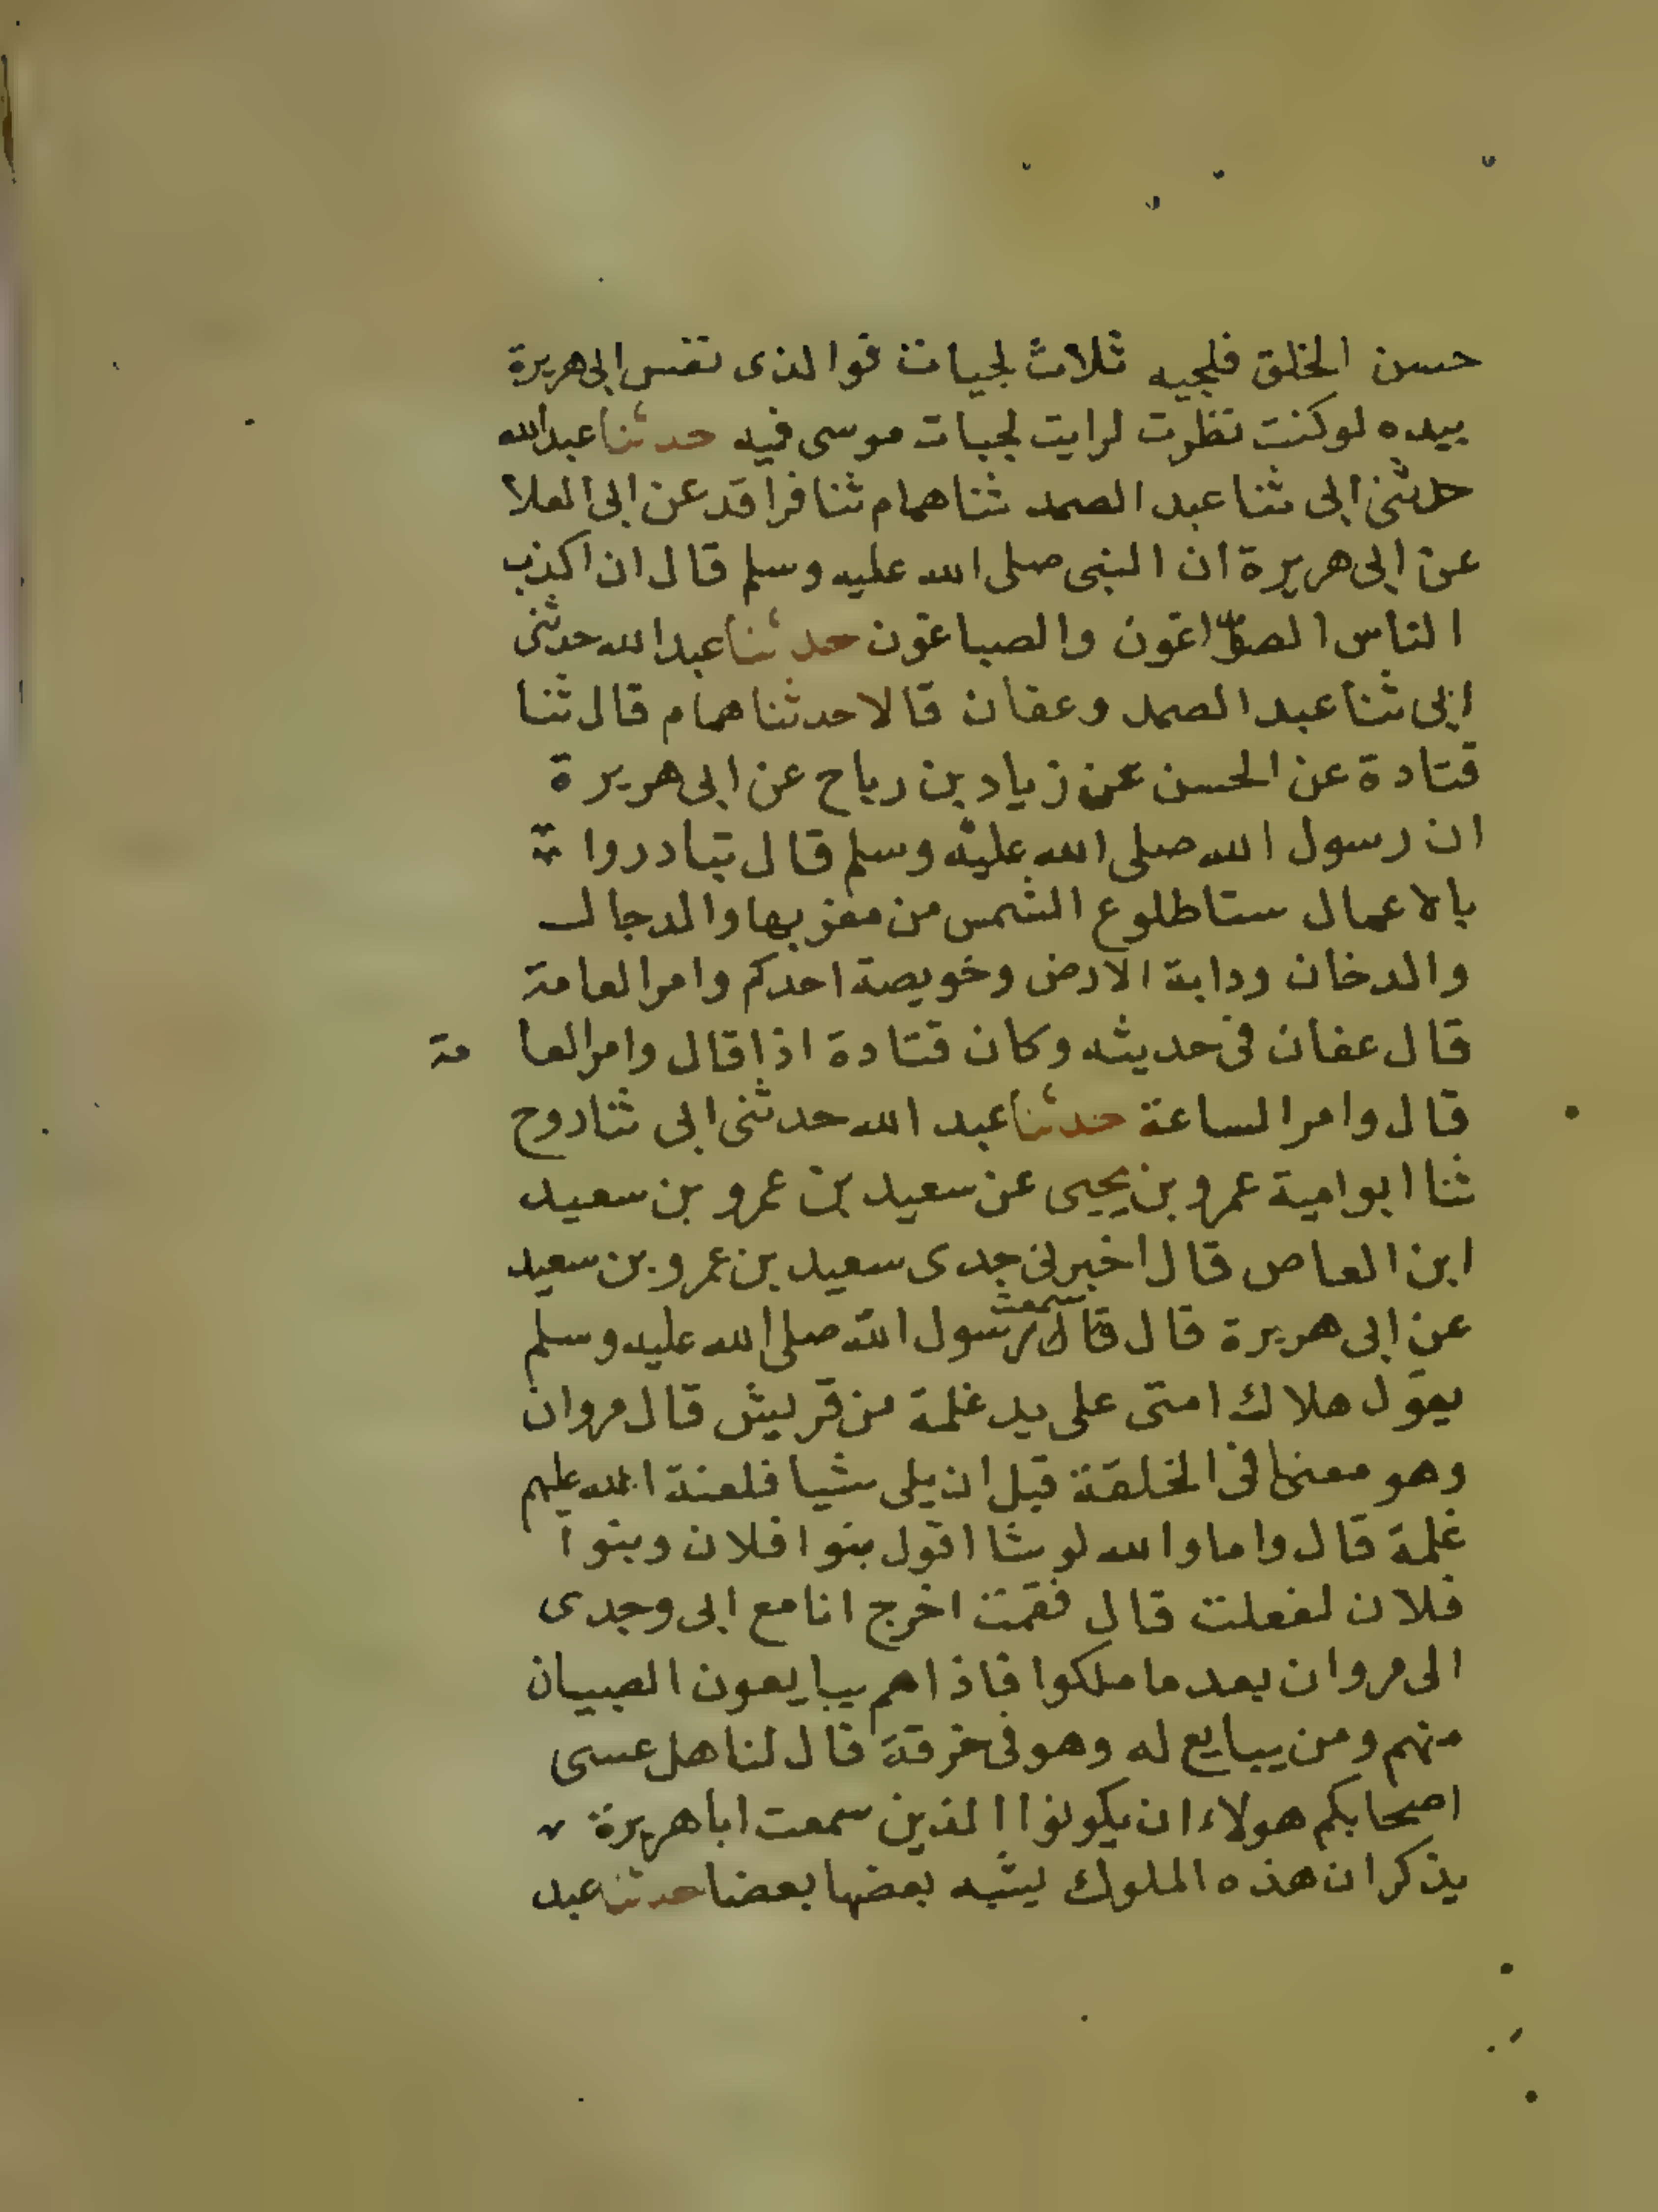 حسن الخلق فلجبه ثلاث لجيات فوالذى نفس ابى هريرة
بيده لو كنت نظرت لرايت لجبات موسى فيه حدثنا عبد الله
حدثنى ابى ثنا عبد الصمد ثنا همام ثنا فراقد عن ابى العلا
عن ابى هريرة ان النبى صلى الله عليه وسلم قال ان اكذب
الناس الصواغون والصباغون حدثنا عبد الله حدثنى
ابى ثنا عبد الصمد وعفان قالا حدثنا همام قال ثنا
قتادة عن الحسن عن زياد بن رباح عن ابى هريرة
ان رسول الله صلى الله عليه وسلم قال تبادروا
بالاعمال ستا طلوع الشمس من مغربها والدجال
والدخان ودابة الارض وخويصة احدكم وامر العامة
قال عفان فى حديثه وكان قتادة اذا قال وامر العامة
قال وامر الساعة حدثنا عبد الله حدثنى ابى ثنا روح
ثنا ابو امية عمرو بن يحيى عن سعيد بن عمرو بن سعيد
ابن العاص قال اخبرنى جدى سعيد بن عمرو بن سعيد
عن ابى هريرة قال قال سمعت رسول الله صلى الله عليه وسلم
يقول هلاك امتى على يد غلمة من قريش قال مروان
وهو معنا فى الخلقة قبل ان يلى شيا فلعنة الله عليهم
غلمة قال واما والله لو شا اقول بنوا فلان وبنوا
فلان لفعلت قال فقمت اخرج انا مع ابى وجدى
الى مروان بعد ما ملكوا فاذا هم يبايعون الصبيان
منهم ومن يبايع له وهو فى خرقة قال لنا هل عسى
اصحابكم هولاء ان يكونوا الذين سمعت ابا هريرة
يذكر ان هذه الملوك يشبه بعضها بعضا حدثنا عبد